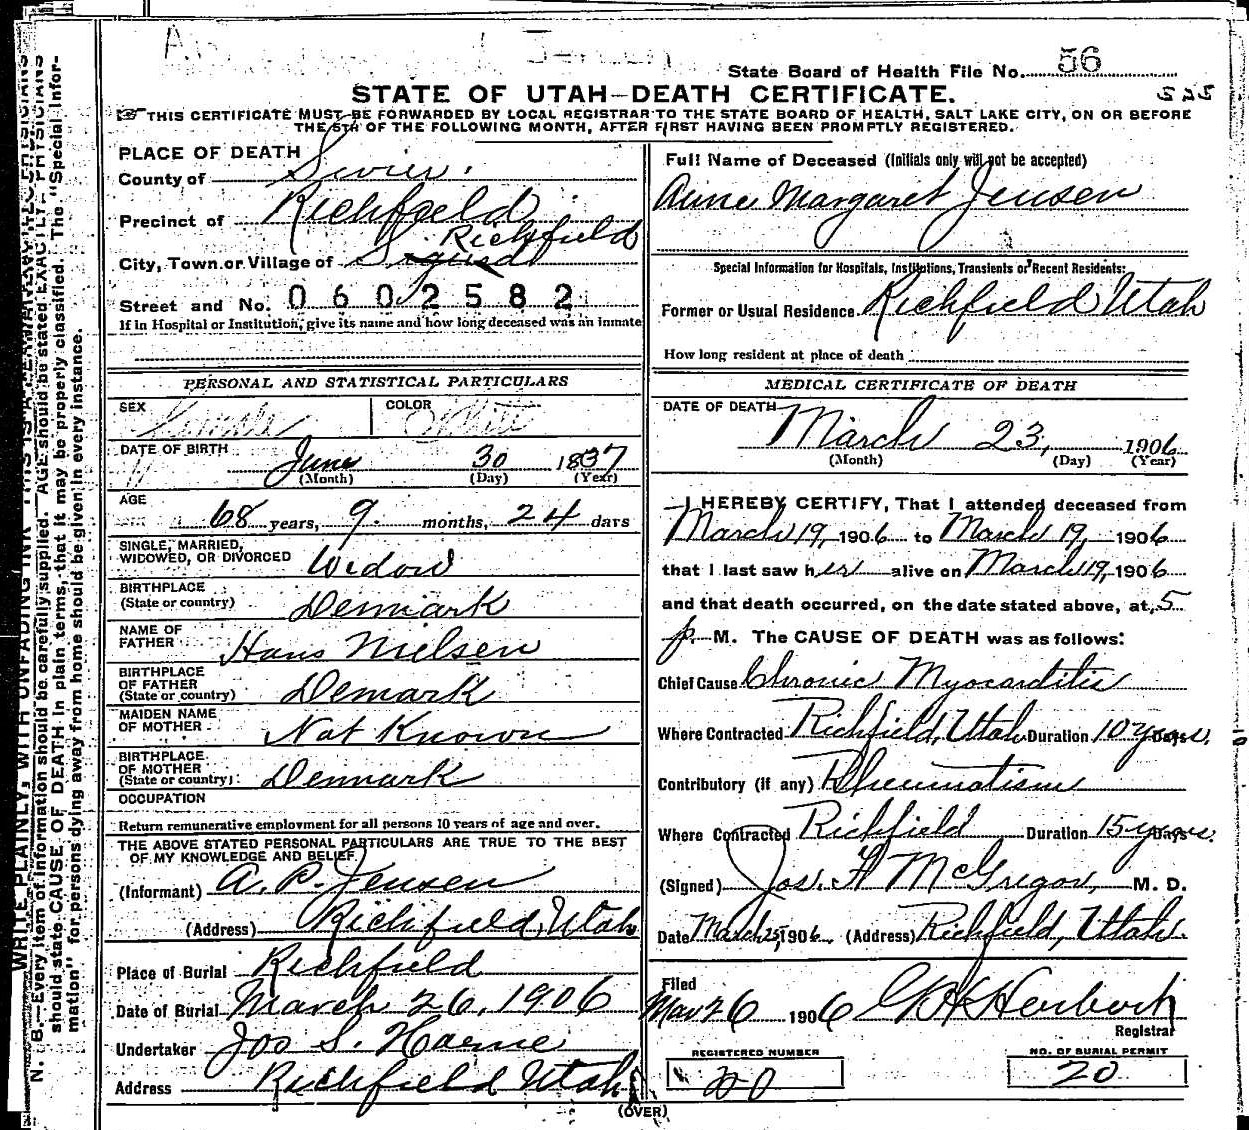 State Board of Health File No. 56
STATE OF UTAH—DEATH CERTIFICATE.
THIS CERTIFICATE MUST BE FORWARDED BY LOCAL REGISTRAR TO THE STATE BOARD OF HEALTH, SALT LAKE CITY, ON OR BEFORE
THE 5TH OF THE FOLLOWING MONTH, AFTER FIRST HAVING BEEN PROMPTLY REGISTERED.
PLACE OF DEATH
County of Sevier.
Precinct of Richfield
Richfield
City, Town or Village of Sigurd
Street and No. 0602582
If in Hospital or Institution, give its name and how long deceased was an inmate
PERSONAL AND STATISTICAL PARTICULARS
SEX Female COLOR White
DATE OF BIRTH June 30 1837
(Month) (Day) (Year)
AGE 68 years, 9 months, 24 days
SINGLE, MARRIED,
WIDOWED, OR DIVORCED Widow
BIRTHPLACE
(State or country) Denmark
NAME OF
FATHER Hans Nielsen
BIRTHPLACE
OF FATHER
(State or country) Demark
MAIDEN NAME
OF MOTHER Not Known
BIRTHPLACE
OF MOTHER
(State or country) Denmark
OCCUPATION
Return remunerative employment for all persons 10 years of age and over.
THE ABOVE STATED PERSONAL PARTICULARS ARE TRUE TO THE BEST
OF MY KNOWLEDGE AND BELIEF.
(Informant) A. P. Jensen
(Address) Richfield, Utah
Place of Burial Richfield
Date of Burial March 26, 1906
Undertaker Joo S. Horne
Address Richfield Utah
Full Name of Deceased (Initials only will not be accepted)
Anne Margaret Jensen
Special Information for Hospitals, Institutions, Transients or Recent Residents:
Former or Usual Residence Richfield Utah
How long resident at place of death
MEDICAL CERTIFICATE OF DEATH
DATE OF DEATH March 23, 1906
(Month) (Day) (Year)
I HEREBY CERTIFY, That I attended deceased from
March 19, 1906 to March 19, 1906
that I last saw her alive on March 19, 1906
and that death occurred, on the date stated above, at 5
p. M. The CAUSE OF DEATH was as follows:
Chief Cause Chronic Myocarditis
Where Contracted Richfield, Utah Duration 10 years.
Contributory (if any) Rheumatism
Where Contracted Richfield Duration 15 years.
(Signed) Jos. F McGregor, M. D.
Date March 25, 1906 (Address) Richfield, Utah.
Filed
Mar 26 1906
Registrar
REGISTERED NUMBER
20
NO. OF BURIAL PERMIT
20
(OVER)
WRITE PLAINLY, WITH UNFADING INK
N. B.—Every item of information should be carefully supplied. AGE should be stated EXACTLY. PHYSICIANS
should state CAUSE OF DEATH in plain terms, that it may be properly classified. The "Special Infor-
mation" for persons dying away from home should be given in every instance.